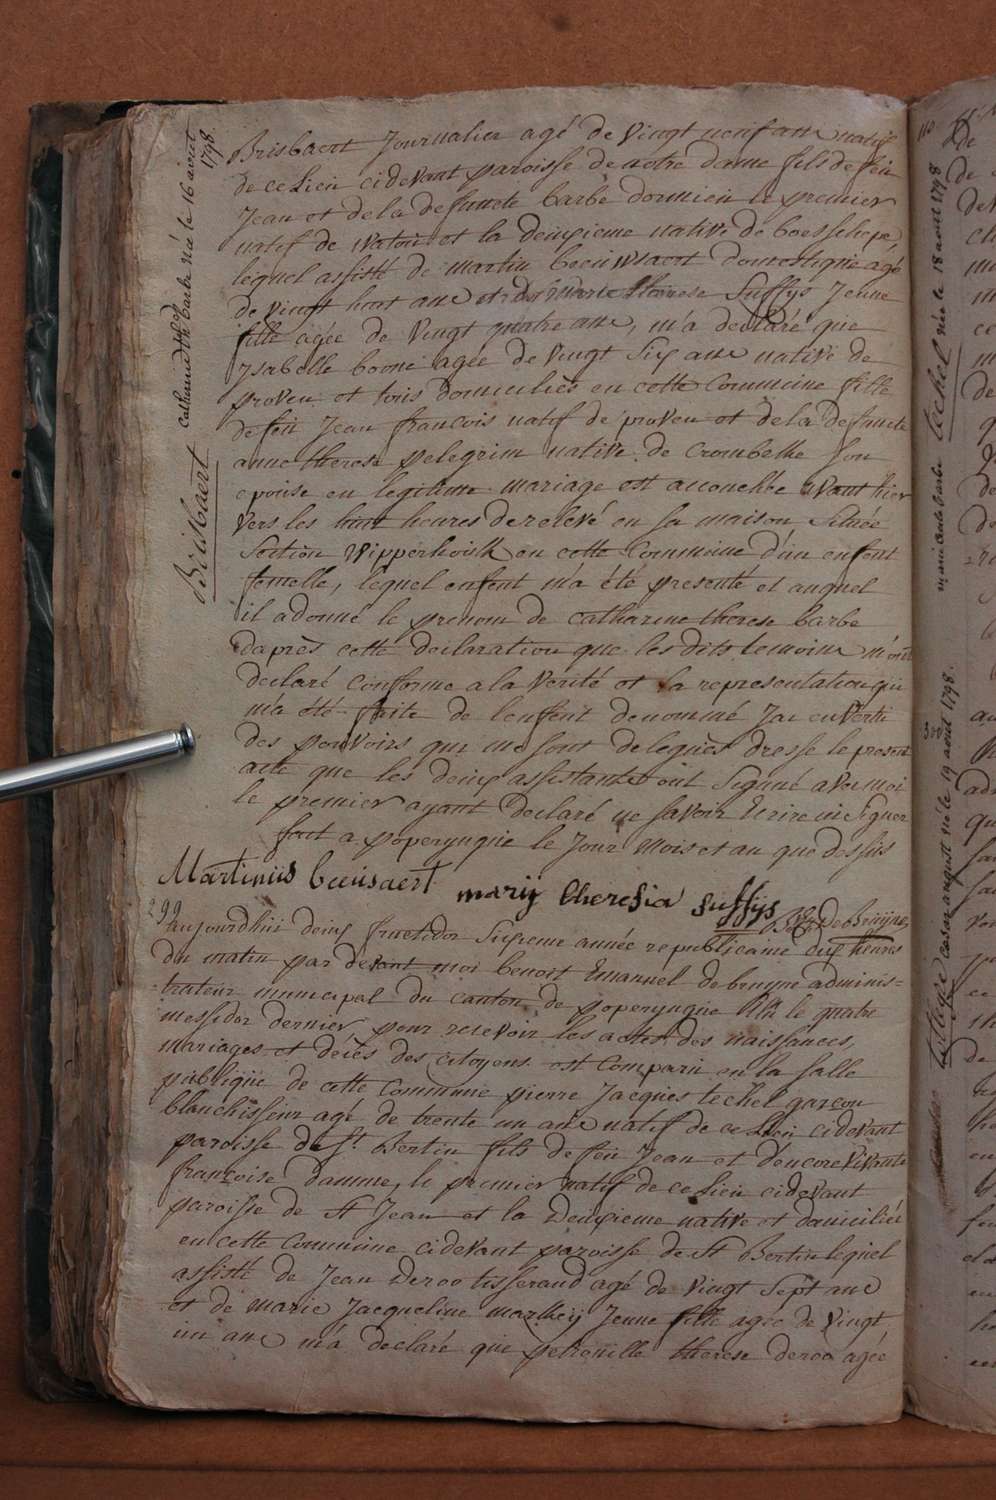 Brisbaert Journalier agé de vingt neuf ans natif
de ce Lieu cidevant paroisse de notre dame fils de feu
Jean et de la defuncte barbe dormieu le premier
natif de Watou et la deuxieme native de boesschepe,
lequel assisté de martin beeuwsaert domestique agé
de vingt huit ans et de Marie Therese Suffys Jeune
fille agée de vingt quatre ans, m'a declaré que
Isabelle boone agée de vingt six ans native de
proven et tous domiciliés en cette Commune fille
de feu Jean francois natif de proven et de la defuncte
anne therese pelegrim native de Crombeke son
epouse en legitime mariage est accouchée avant hier
vers les huit heures de relevé en sa maison Située
Section Wipperhouk en cette Commune d'un enfent
femelle, lequel enfent m'a été presenté et auquel
il a donné le prenom de catharine therese barbe
daprès cette declaration que les dits temoins m'ont
declaré Conforme a la verité et la representation qui
m'a été faite de lenfent denommé J'ai en vertu
des pouvoirs qui me sont delegués dressé le present
acte que les deux assistants ont Signné avec moi
le premier ayant declaré ne savoir Ecrire ni Signer
fait a poperyngue le Jour mois et an que dessus
Martiniis beeüsaert marij theresia suffijs B: E: De Bruijne
292
aujourdhui deux fructidor Sixieme année republicaine dix heures
du matin par devant moi benoit Emanuel de bruyne adminis=
trateur municipal du canton de poperyngue Elu le quatre
messidor dernier pour recevoir les actes des naissances,
mariages et décès des citoyens est Comparu en la salle
publique de cette commune pierre Jacques techel garçon
blanchisseur agé de trente un ans natif de ce Lieu cidevant
paroisse de St. Bertin fils de feu Jean et d'encore vivante
françoise damme, le premier natif de ce Lieu cidevant
paroisse de St Jean et la Deuxieme native et domiciliée
en cette Commune cidevant paroisse de St Bertin lequel
assisté de Jean Deroo tisserand agé de vingt sept ans
et de marie Jacqueline markeij Jeune fille agée de vingt
un ans m'a declaré que petronille therese deroo agée
Brisbaert catharine th: barbe née le 16 aout
1798.
techel née le 18 aout 1798
né le 19 août 1798.